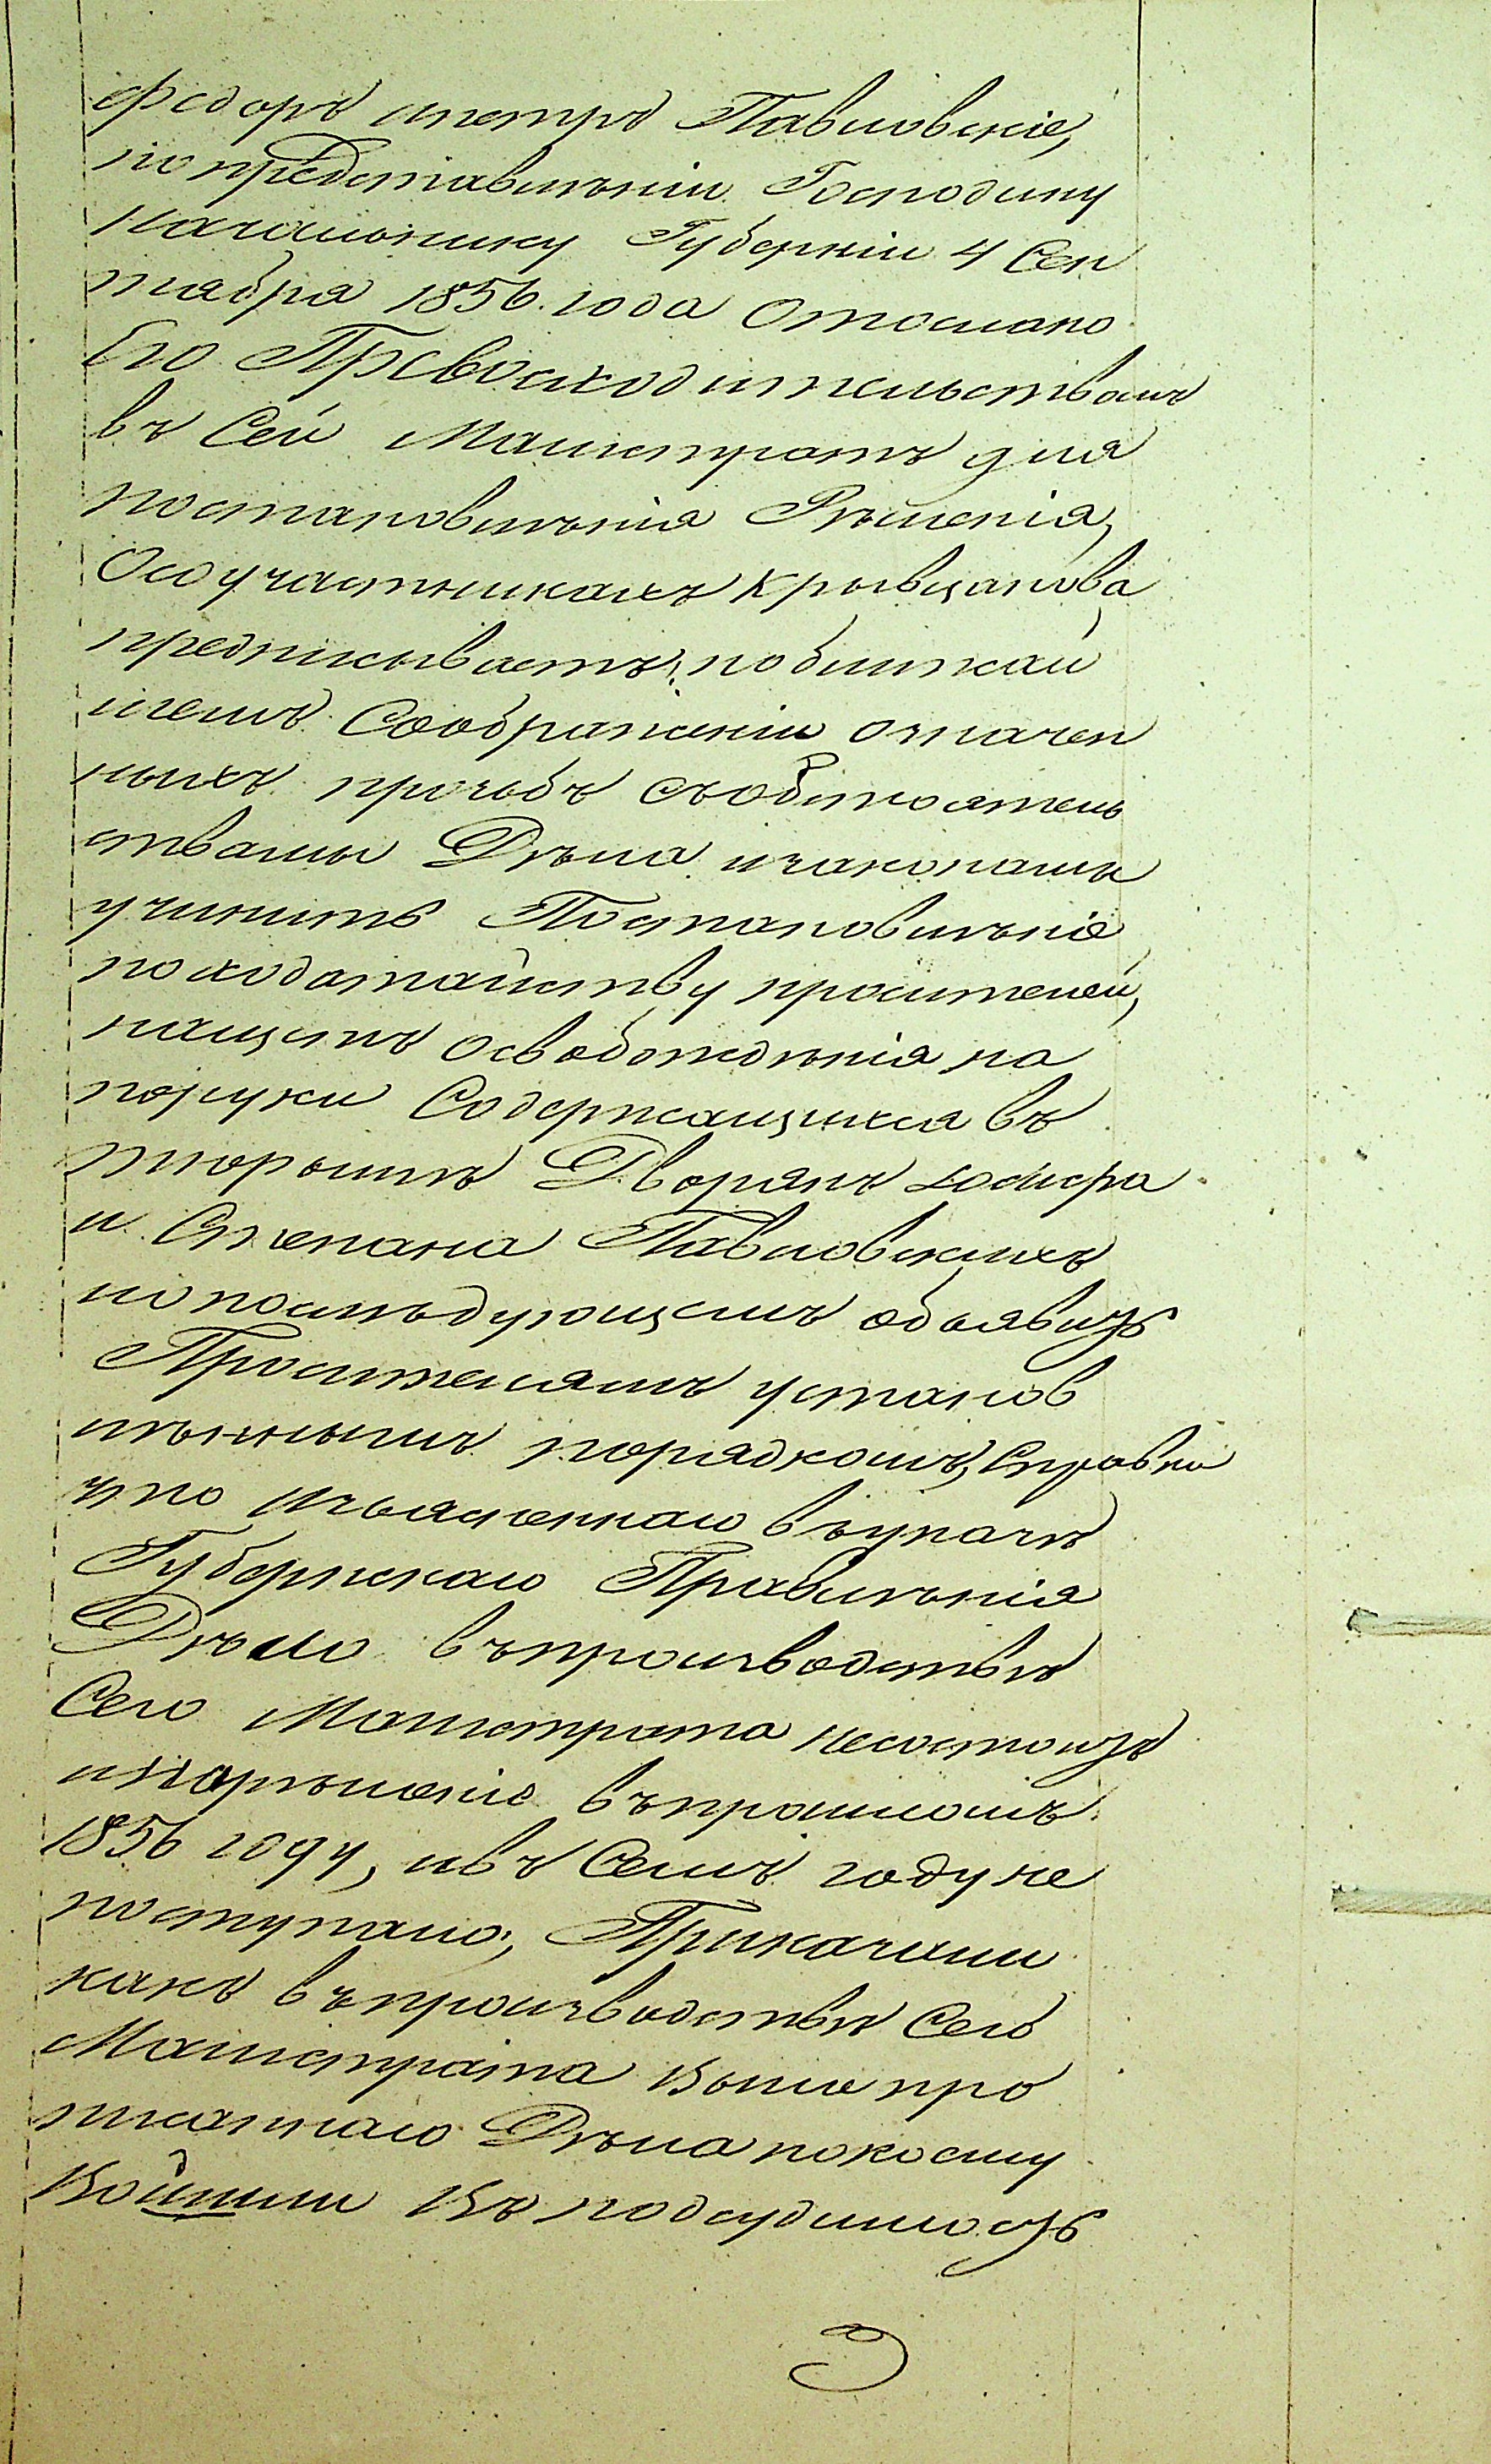 Федоръ ипетръ Павловскіе,
попредставлѣніи Господину
Начальнику Губерніи 4 Сен
тября 1856 года отослано
Его Превосходительствомъ
въ Сей Магистратъ для
постановлѣнія Рѣшенія,
Осоучастникахъ Крывцанова
предписываетъ, поближай
шемъ Соображеніи означен
ныхъ прозьбъ съобстоятель
ствами Дѣла изаконами
учинить Постановлѣніе
походатайству просителей,
нащетъ освобождѣнія на
поруки Содержащихся въ
тюрьмѣ Дворянъ
и Степана Павловскихъ
ипослѣдующемъ объявить
Просителямъ установ
лѣннымъ порядкомъ, Справка
что изъясненнаго въуказѣ
Губернскаго Правлѣнія
Дѣло въпроизводствѣ
Сего Магистрата несостоитъ
инарѣшеніе въпрошломъ
1856 году, ивъ Семъ году не
поступало, Приказали
какъ въпроизводствѣ Сего
Магистрата выше про
писаннаго Дѣла покоему
войшли въ подсудимость